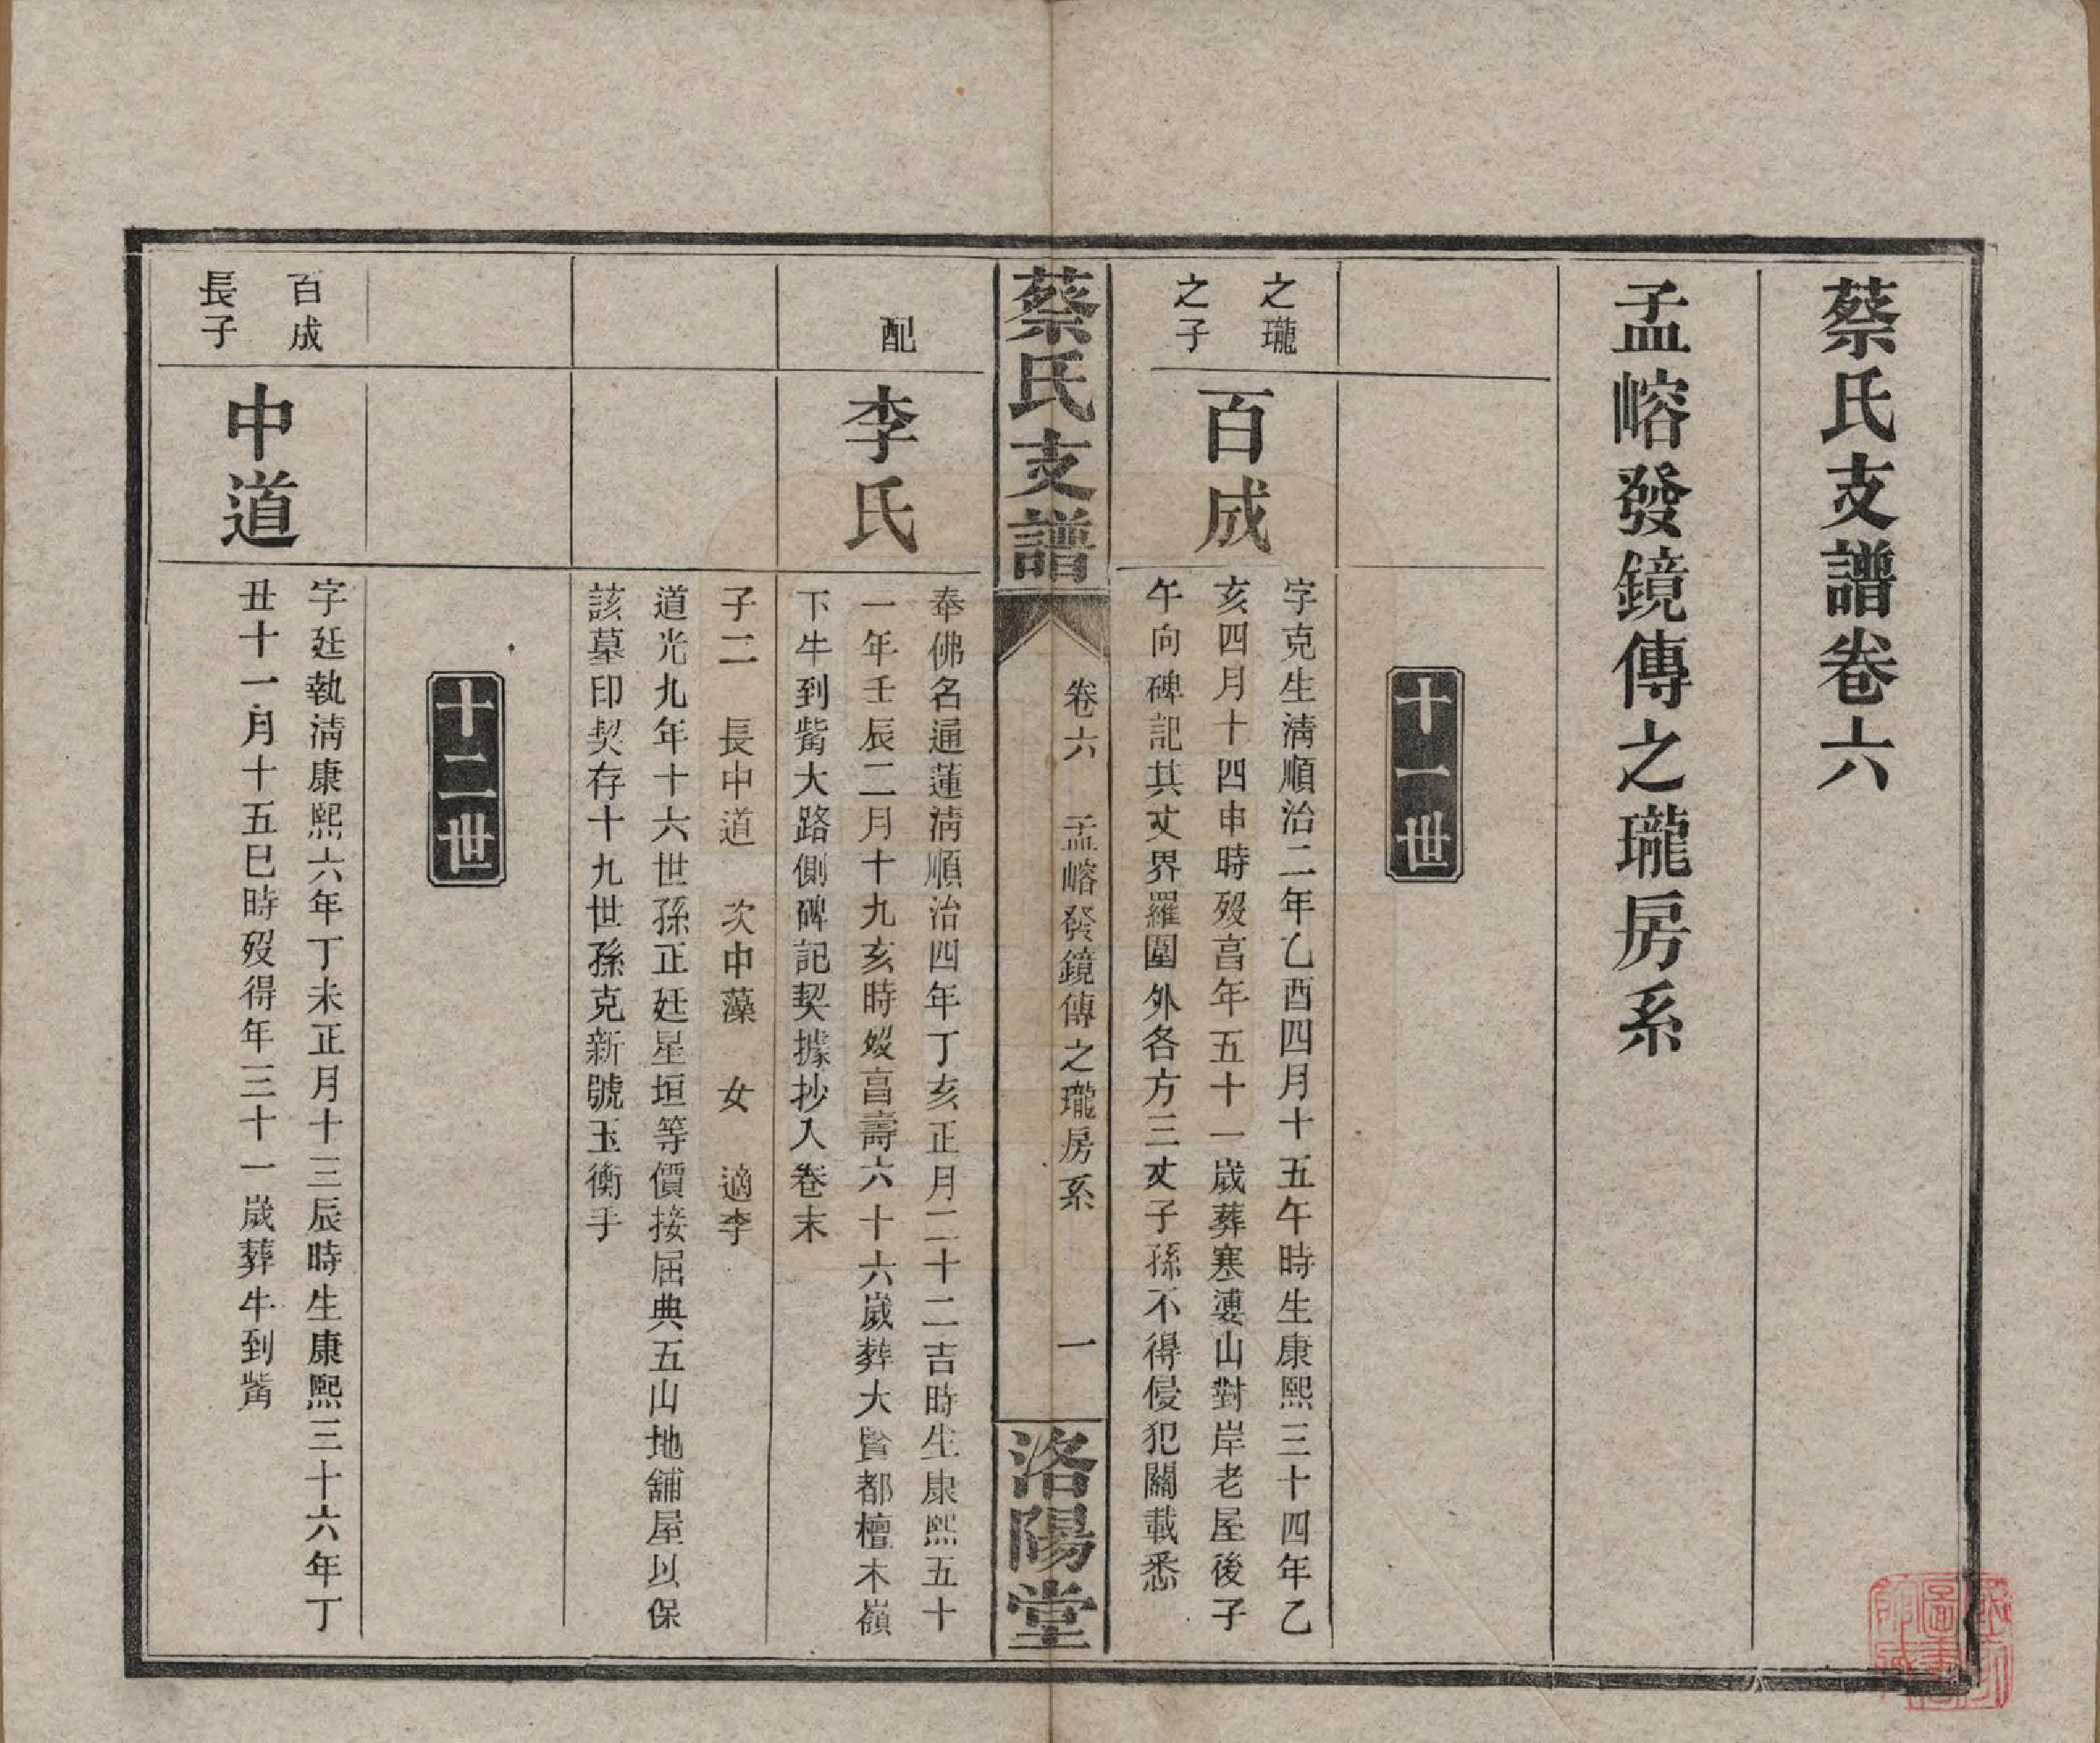 蔡氏支譜卷六
孟嵱發鏡傳之瓏房系
十一世
之瓏
之子
百成
字克生淸順治二年乙酉四月十五午時生康熙三十四年乙
亥四月十四申時歿亯年五十一歲葬寒婆山對岸老屋後子
午向碑記其丈界羅圍外各方三丈子孫不得侵犯關載悉
蔡氏支譜
卷六
孟嵱發鏡傳之瓏房系
一
洛陽堂
配
李氏
奉佛名通蓮淸順治四年丁亥正月二十二吉時生康熙五十
一年壬辰二月十九亥時歿亯壽六十六歲葬大賢都檀木嶺
下牛到觜大路側碑記契據抄入卷末
子二 長中道 次中藻 女 適李
道光九年十六世孫正廷星垣等價接屈典五山地舖屋以保
該墓印契存十九世孫克新號玉衡手
十二世
百成
長子
中道
字廷執淸康熙六年丁未正月十三辰時生康熙三十六年丁
丑十一月十五巳時歿得年三十一歲葬牛到觜